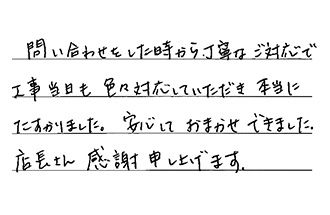 問い合わせをした時から丁寧なご対応で
工事当日も色々対応していただき本当に
たすかりました。安心しておまかせできました。
店長さん感謝申し上げます。